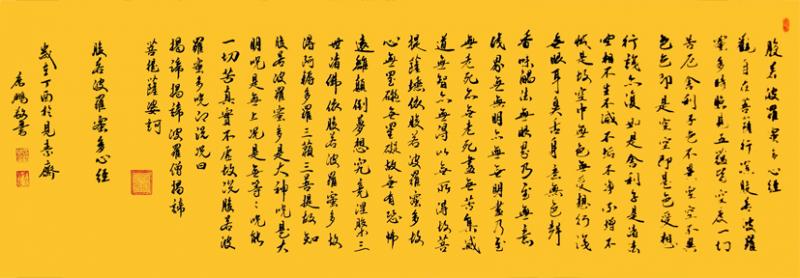 般若波羅蜜多心經
觀自在菩薩行深般若波羅
蜜多時照見五蘊皆空度一切
苦厄舍利子色不異空空不異
色色即是空空即是色受想
行識亦復如是舍利子是諸法
空相不生不滅不垢不淨不增不
減是故空中無色無受想行識
無眼耳鼻舌身意無色聲
香味觸法無眼界乃至無意
識界無無明亦無無明盡乃至
無老死亦無老死盡無苦集滅
道無智亦無得以無所得故菩
提薩埵依般若波羅蜜多故
心無罣礙無罣礙故無有恐怖
遠離顛倒夢想究竟涅槃三
世諸佛依般若波羅蜜多故
得阿耨多羅三藐三菩提故知
般若波羅蜜多是大神咒是大
明咒是無上咒是無等等咒能
一切苦真實不虛故說般若波
羅蜜多咒即說咒曰
揭諦揭諦波羅僧揭諦
菩提薩婆訶
般若波羅蜜多心經
歲在丁酉於見素齋
鵬敬書